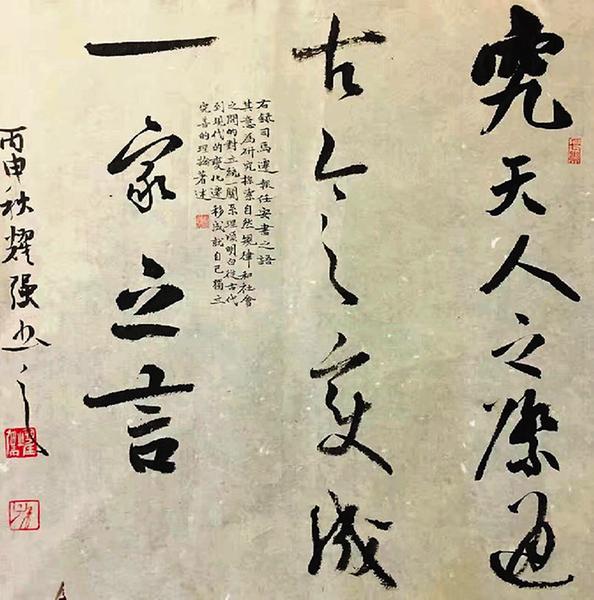 究天人之際通
古今之變成
一家之言
右錄司馬遷報任安書之語
其意為研究探索自然規律和社會
之間的對立統一關系理順明白從古代
到現代的變化遷移成就自己獨立
完善的理論著述
丙申秋耀强书之